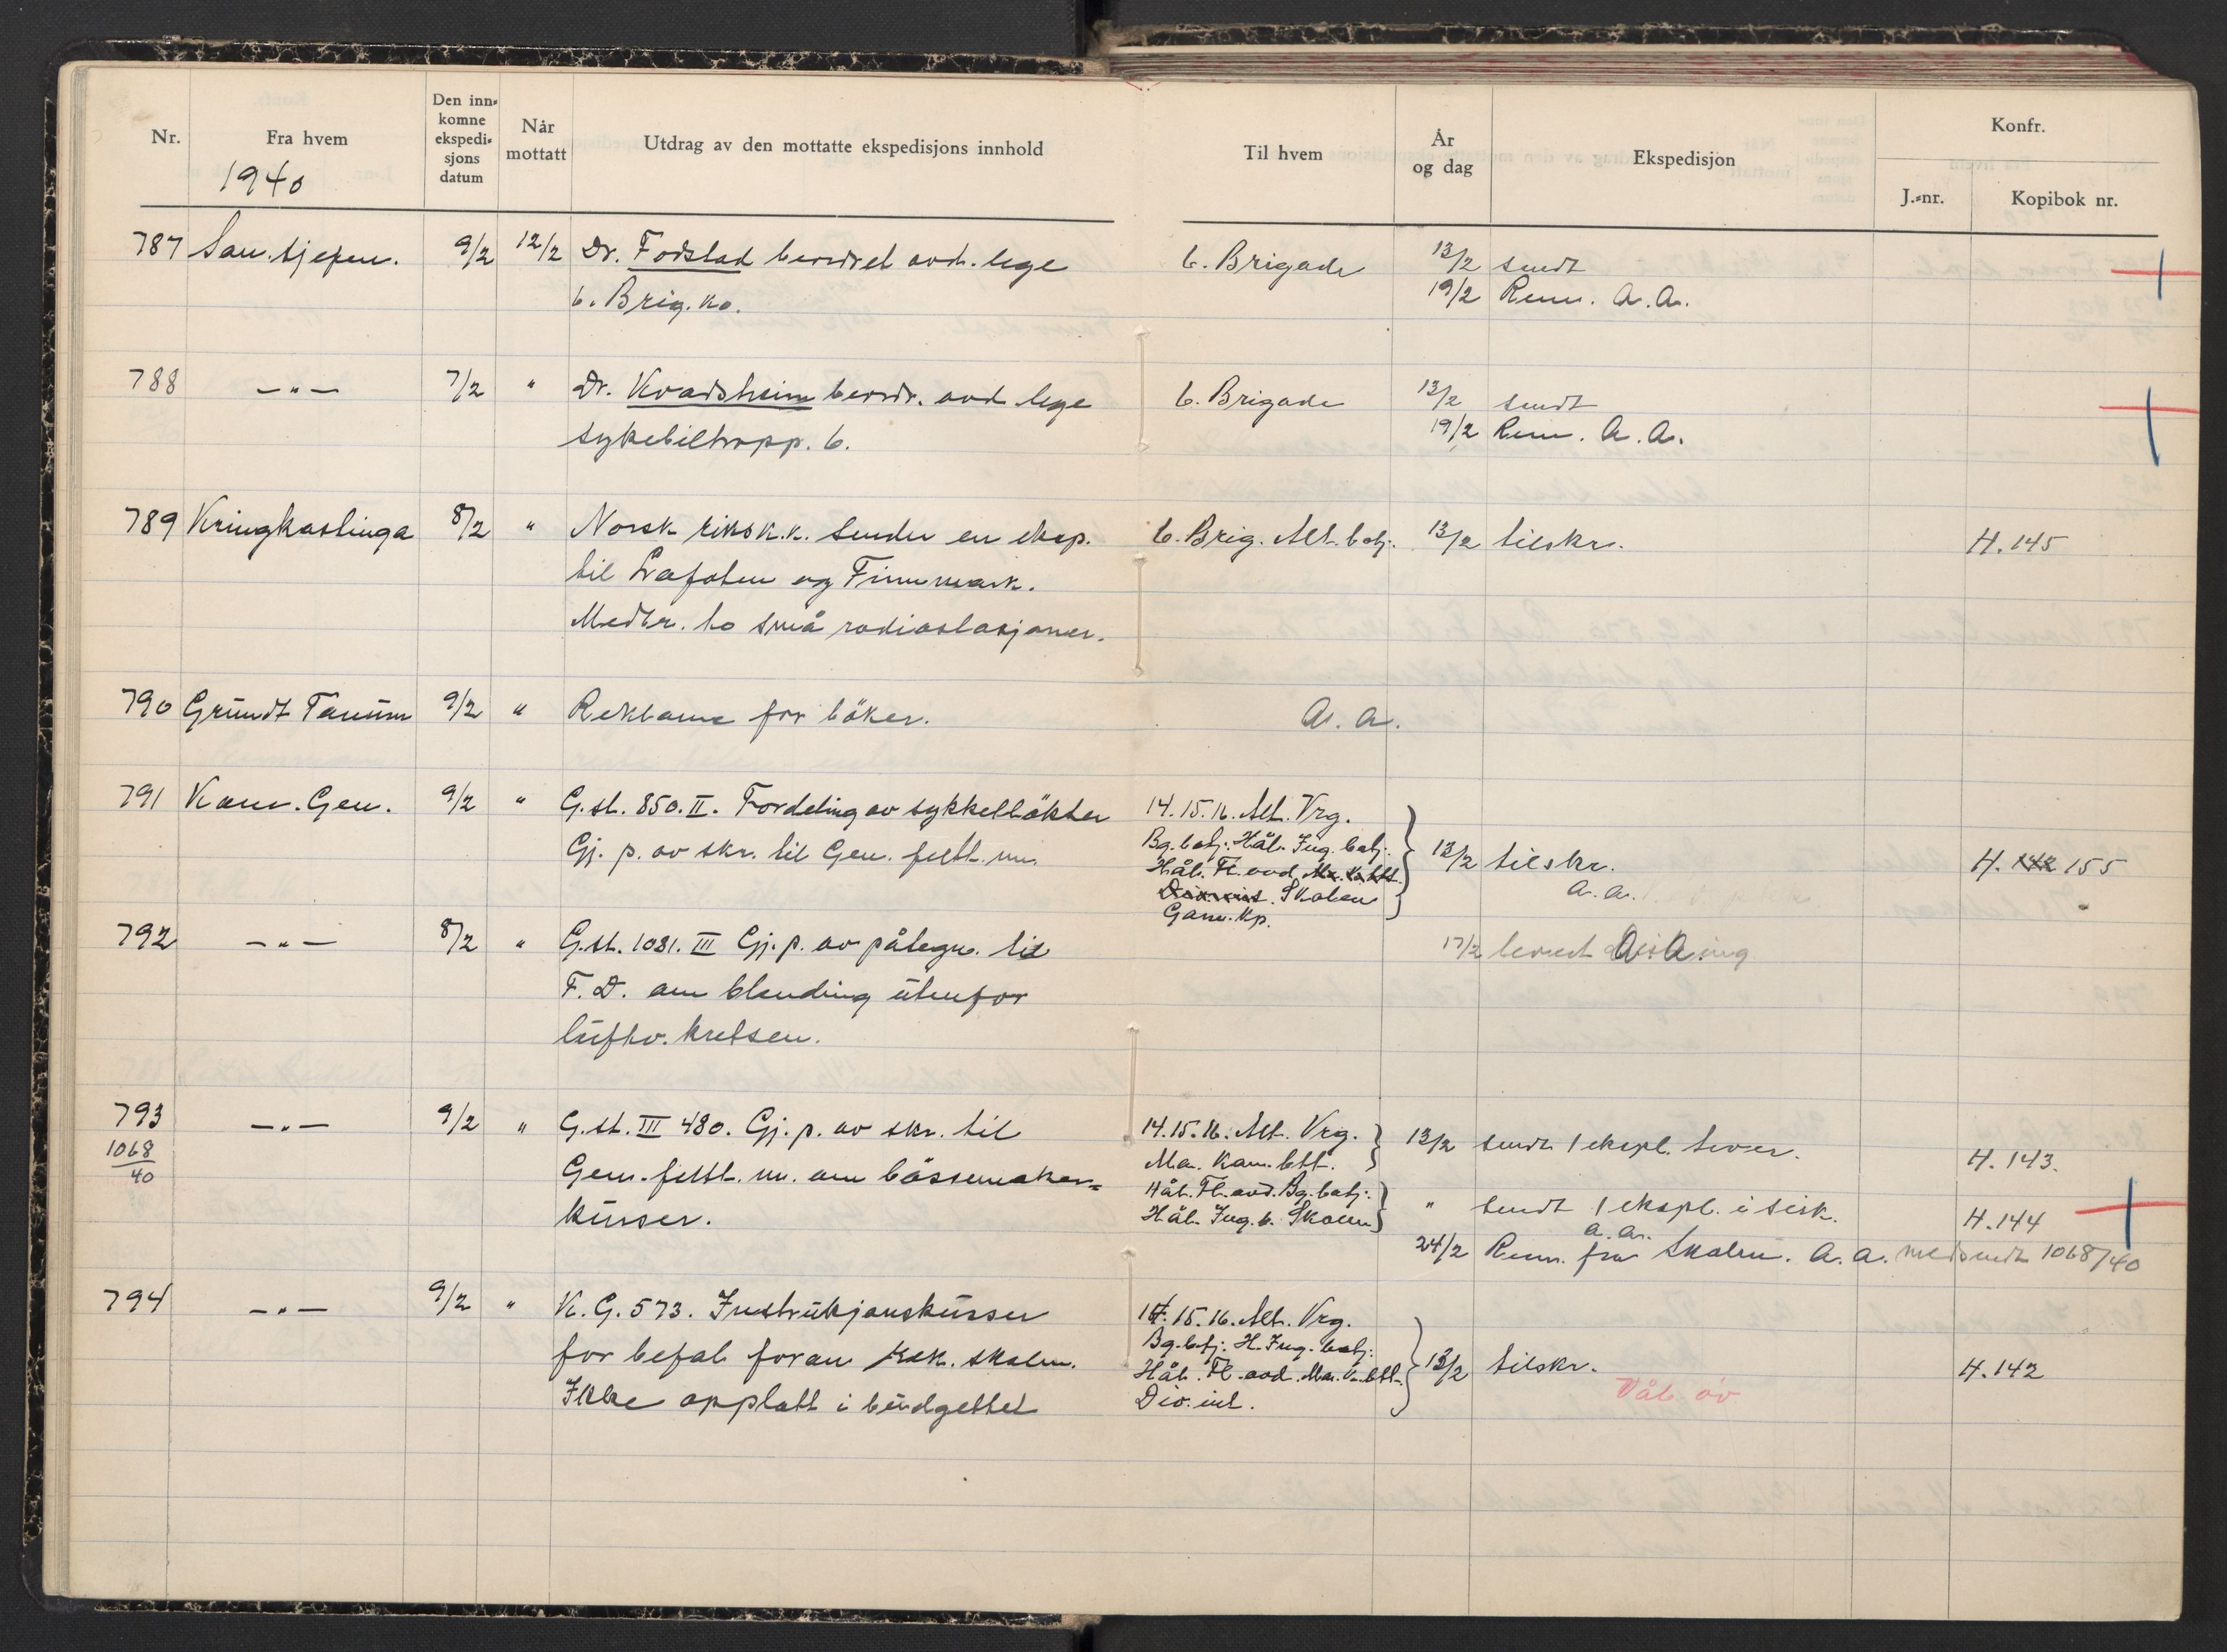 Nr.
Fra hvem
Den inn-
komne
ekspedi-
sjons
datum
Når
mottatt
Utdrag av den mottatte ekspedisjons innhold
Til hvem
År
og dag
Ekspedisjon
Konfr.
J.-nr.
Kopibok nr.
1940
787 San. sjefen. 9/2 12/2 Dr. Fodstad beordret avd. lege 6. Brigade 13/2 sendt
6. Brig. ko. 19/2 Renv. A.A.
788 —"— 7/2 " Dr. Kvadsheim beordr. avd lege 6. Brigade 13/2 sendt
sykebiltropp. 6. 19/2 Renv. A.A.
789 Kringkastinga 8/2 " Norsk riksk.k. sender en eksp. 6. Brig. Alt. batj. 13/2 tilskr. H. 145
til Lofoten og Finnmark.
Medbr. to små radiostasjoner.
790 Grundt Tanum 9/2 " Reklame for böker. A. A.
791 Kom. Gen. 9/2 " G.st. 850. II. Fordeling av sykkelbökter 14. 15. 16. Alt. Vrg.
Gj. p. av skr. til Gen. felt. m. Bg. batj. Hål. Ing. batj. 13/2 tilskr. H. 142 155
Hål. Fl. avd. Mo. K. btt. A. A.
Div. int. Skolen
Garn. Kp.
792 —"— 8/2 " G.st. 1031. III Gj. p. av påtegn. til 17/2 A.A.
F. D. om blending utenfor
luftv. kretsen.
793 —"— 9/2 " G.st. III 480. Gj. p. av skr. til 14. 15. 16. Alt. Vrg. 13/2 sendt 1 ekspl. hver. H. 143.
1068/40 Gen. felt. m. om bössemaker= Mo. Kan. btt.
Hål. Fl. avd. Bg. batj. " sendt 1 ekspl. i sirk. H. 144
kurser. Hål. Ing. b. Skolen A.A.
24/2 Renv. fra Skolen. A.A. medsendt 1068/40
794 —"— 9/2 " K. G. 573. Instruksjonskurser 14. 15. 16. Alt. Vrg.
for befal foran rek. skolen. Bg. btj. H. Ing. batj.
Hål. Fl. avd. Mo. K. btt. 13/2 tilskr. H. 142
Ikke opplatt i budgettet Div. int. Våb. öv